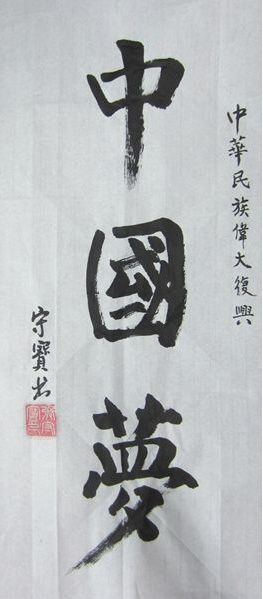 中華民族偉大復興
中國夢
守寶书